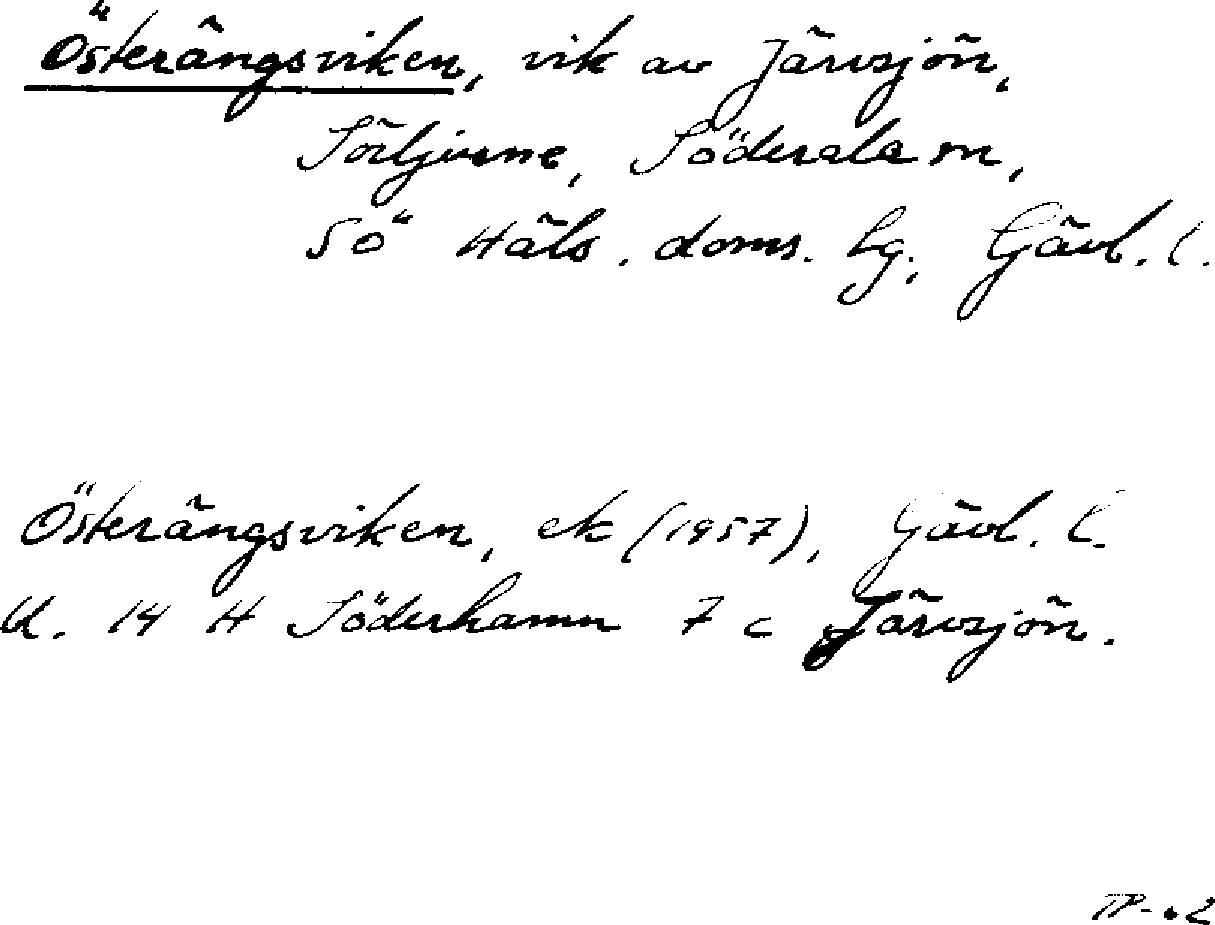 Österängsviken, vik av Järvsjön,
Sörljusne, Söderala sn,
Sö Häls. doms. lg., Gävl. l.
Österängsviken, ek (1957), Gävl. l.
bl. 14 H Söderhamn 7 c Järvsjön.